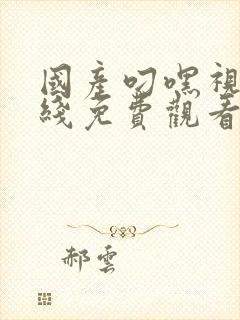 國產叼嘿視
綫免費觀看
郝雲